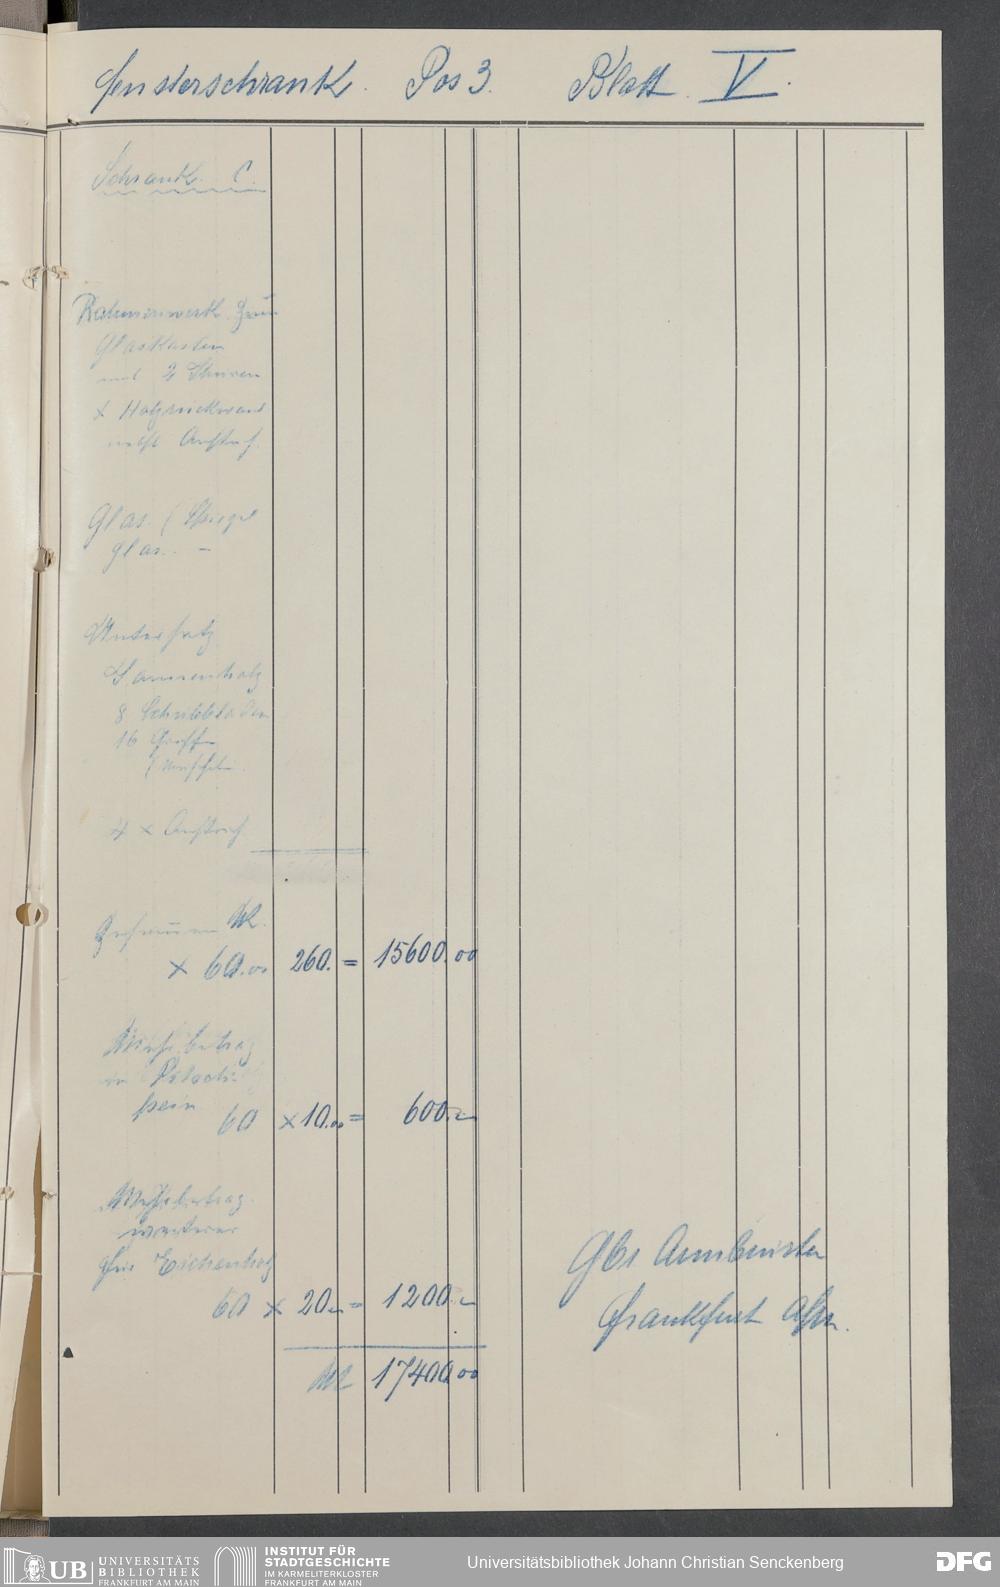 Fensterschrank. Pos 3. Blatt. V.
Schrank. C.
Rahmenwerk zum
Glaskasten
mit 2 Thüren
+ Holzrückwand
nebst Anstrich.
Glas. (Spiegel
glas. –
Untersatz
Tannenholz
8 Schubladen
16 Griffe
4 x Anstrich
Zusammen M.
x 60.00 260. = 15600.00
Mehrbetrag
in
60 x 10.00 = 600.–
Mehrbetrag
für Eichenholz
60 x 20.– = 1200.–
M 17400.00
Gbr Armbruster
Frankfurt a/M.
UB UNIVERSITÄTS
BIBLIOTHEK
FRANKFURT AM MAIN
INSTITUT FÜR
STADTGESCHICHTE
IM KARMELITERKLOSTER
FRANKFURT AM MAIN
Universitätsbibliothek Johann Christian Senckenberg
DFG